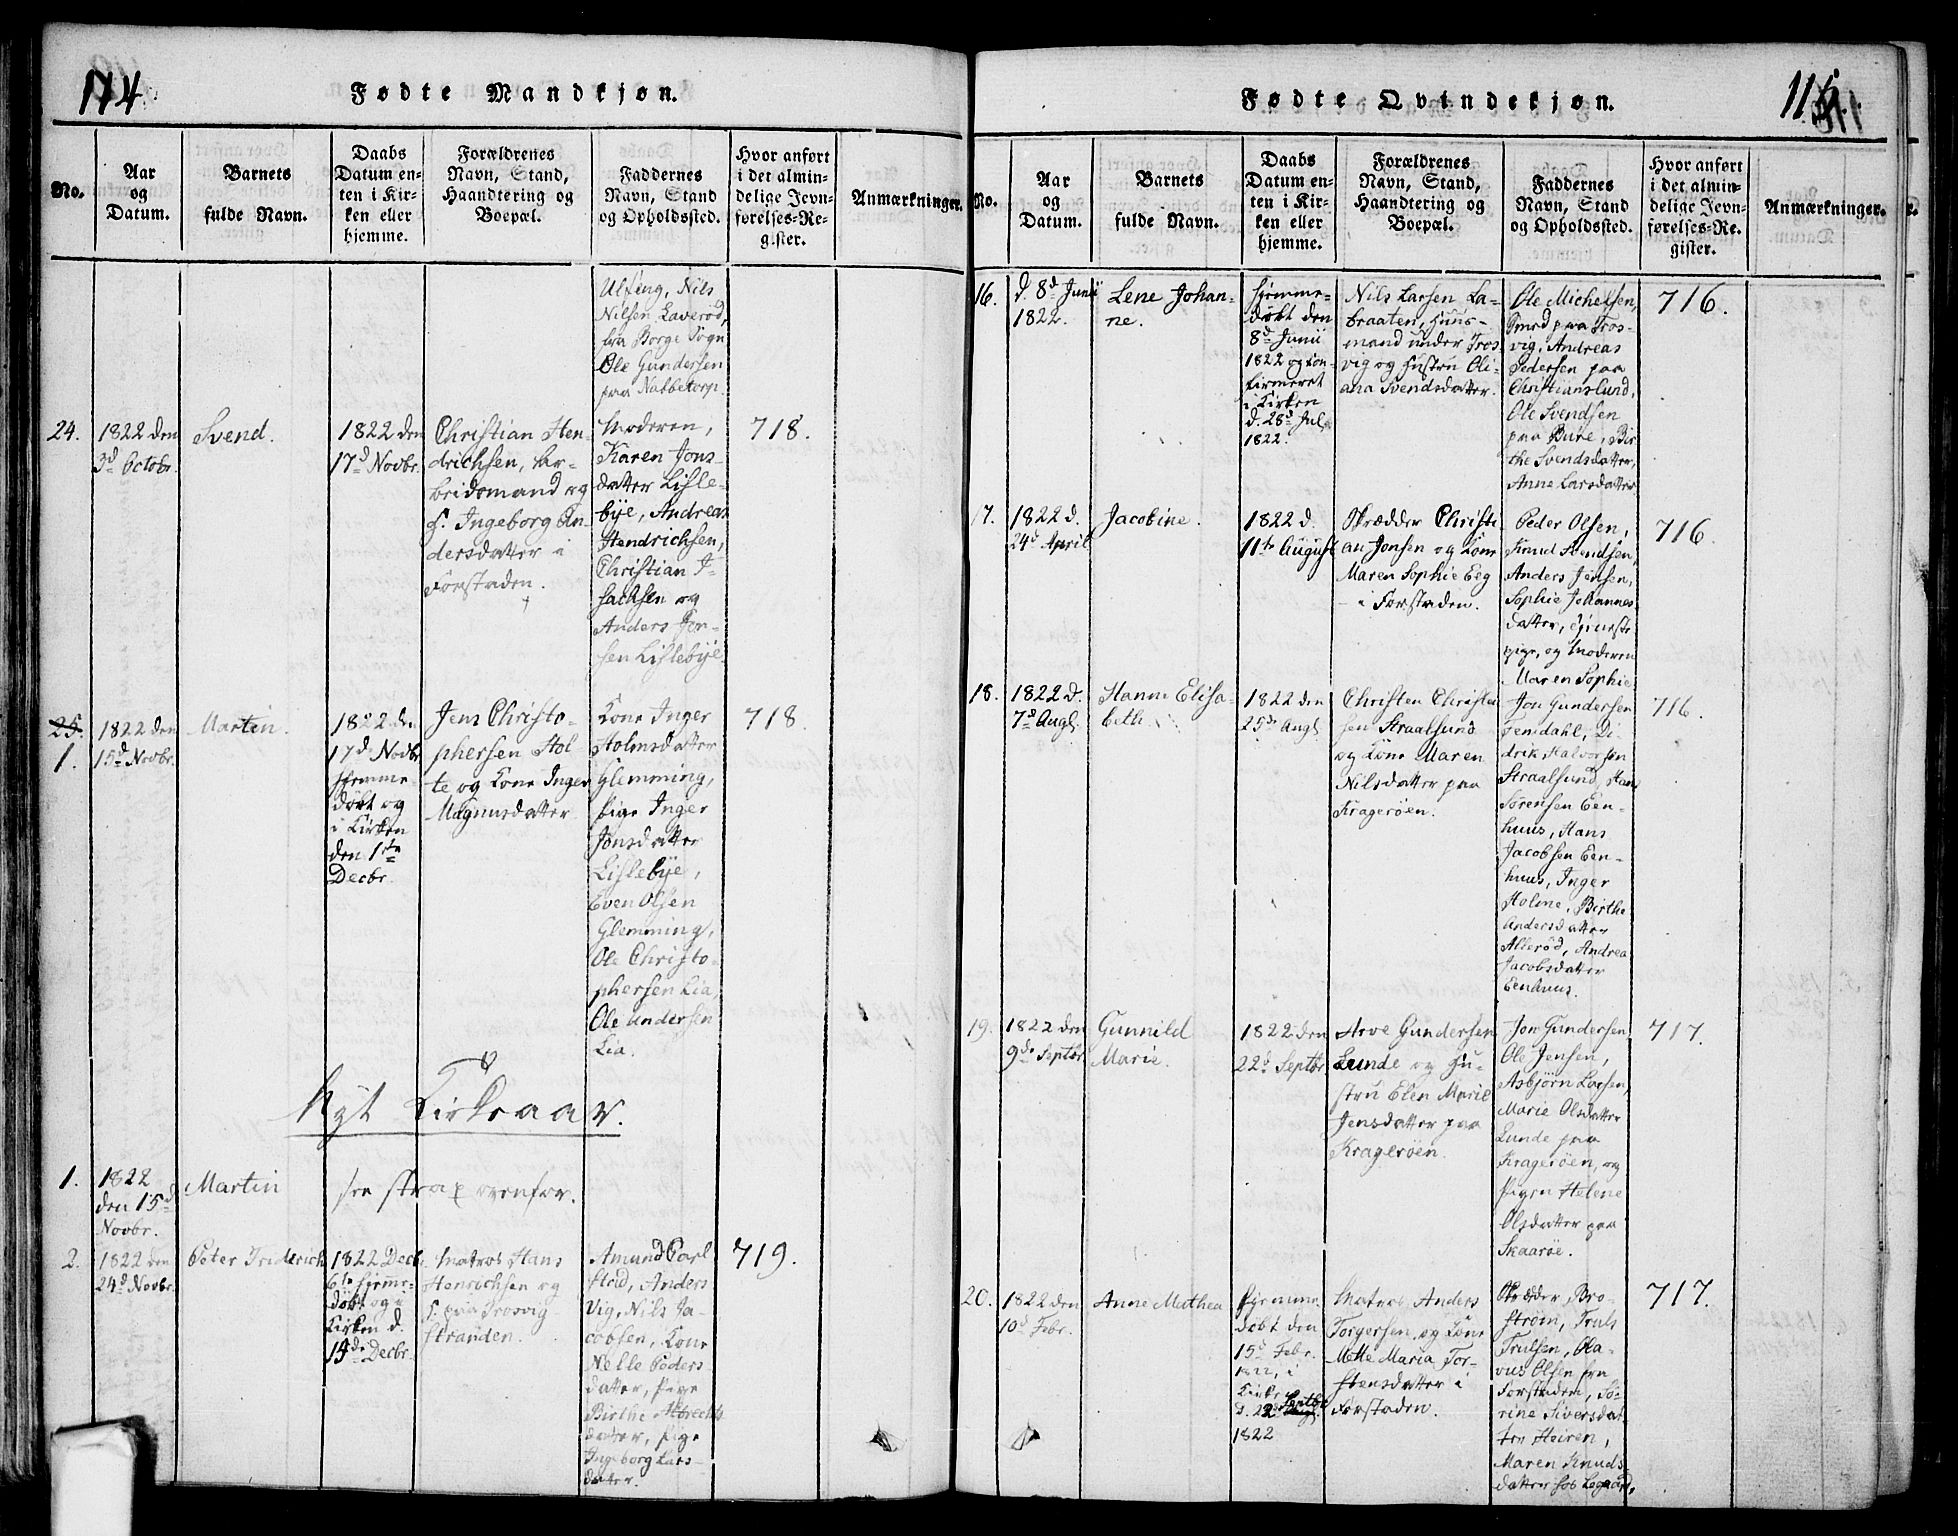 174.
Fødte Mandkjøn.
No.
Aar
og
Datum.
Barnets
fulde Navn.
Daabs
Datum en-
ten i Kir-
ken eller
hjemme.
Forældrenes
Navn, Stand,
Haandtering og
Boepæl.
Faddernes
Navn, Stand
og Opholdssted.
Hvor anført
i det almin-
delige Jevn-
førelses-Re-
gister.
Anmærkninger.
Nils
Nilsen Laverød,
fra Borge Sogn
Ole Gundersen
paa Nabbetorp.
24.
1822 den
3d Octobr.
Svend.
1822 den
17d Novbr.
Christian Hen-
drichsen, Ar-
beidsmand og
H. Ingeborg An-
dersdatter i
Forstaden.
Moderen,
Karen Jons-
datter Lisle-
bye, Andreas
Hendrichsen,
Christian I-
sachsen og
Anders Jen-
sen Lislebye.
718.
25.
1.
1822 den
15d Novbr.
Martin.
1822 den
17d Novbr
hjemme-
døbt og
i Kirken
den 1ste
Decbr.
Jens Christo-
phersen Hol-
te og Kone Inger
Magnusdatter.
Kone Inger
Holmsdatter
Glemming,
Pige Inger
Jonsdatter
Lislebye,
Even Olsen
Glemming,
Ole Christo-
phersen Lia,
Ole Andersen
Lia.
718
Nyt Kirkeaar.
1.
1822
den 15d
Novbr.
Martin
see strax ovenfor.
2.
1822 den
24d Novbr.
Peter Friderich
1822 Decbr.
6te hjemme-
døbt og i
Kirken d.
15de Decbr.
Matros Hans
Henrichsen og
H. paa Trosvig-
stranden.
Amund Carl
stad, Anders
Vig, Nils Ja-
cobsen, Kone
Nelle Peders
datter, Pige
Birthe Albrechts
datter, Pige
Ingeborg Lars-
datter.
719.
115.
Fødte Qvindekjøn.
No.
Aar
og
Datum.
Barnets
fulde Navn.
Daabs
Datum en-
ten i Kir-
ken eller
hjemme.
Forældrenes
Navn, Stand,
Haandtering og
Boepæl.
Faddernes
Navn, Stand
og Opholdssted.
Hvor anført
i det almin-
delige Jevn-
førelses-Re-
gister.
Anmærkninger.
16.
d. 8d Junii
1822.
Lene Johan-
ne.
Hjemme-
døbt den
8d Junii
1822 og con-
firmeret
i Kirken
d. 28d Juli
1822.
Nils Larsen La-
braaten, Huus-
mand under Tros-
vig og Hustru Oli-
ana Svendsdatter.
Ole Michelsen,
Smed paa Tros-
vig, Andreas
Pedersen paa
Christianslund,
Ole Svendsen
paa Bure, Bir-
the Svendsdatter,
Anne Larsdatter
716.
17.
1822 d.
24d April
Jacobine.
1822 d.
11te August
Skrædder Christi
an Jonsen og Kone
Maren Sophie Eeg
i Forstaden.
Peder Olsen,
Knud Svendsen,
Anders Jensen,
Sophie Johannes
datter, tjeneste
pige, og Moderen
Maren Sophie
716.
18.
1822 d.
7d Augl.
Hanne Elisa-
beth.
1822 den
25de Augl
Christen Christen
sen Straalsund
og Kone Maren
Nilsdatter paa
Kragerøen.
Jon Gundersen
Femdahl, Di-
drik Halvorsen
Straalsund, Hans
Sörensen Een-
huus, Hans
Jacobsen Een-
huus, Inger
Holme, Birthe
Andersdatter
Allerød, Andrea
Jacobsdatter
Eenhuus.
716.
19.
1822 den
9de Septbr.
Gunnild
Marie.
1822 den
22d Septbr.
Arve Gundersen
Lunde og Hu-
stru Elen Marie
Jensdatter paa
Kragerøen.
Jon Gundersen,
Ole Jensen,
Asbjörn Larsen,
Marie Olsdatter
Lunde paa
Kragerøen, og
Pigen Helene
Olsdatter paa
Skaarøe.
717.
20.
1822 den
10d Febr.
Anne Mathea
Hjemme-
døbt den
15d Febr.
1822, i
Kirken
d. 22 Septbr
1822
Matros Anders
Torgersen, og Kone
Mette Maria Tor-
stensdatter i
Forstaden.
Skrædder Bro-
ström, Truls
Trulsen, Ola-
vus Olsen fra
Forstaden, Sö-
rine Siversdat-
ter Heiren,
Maren Knuds-
datter hos Legaard,
717.